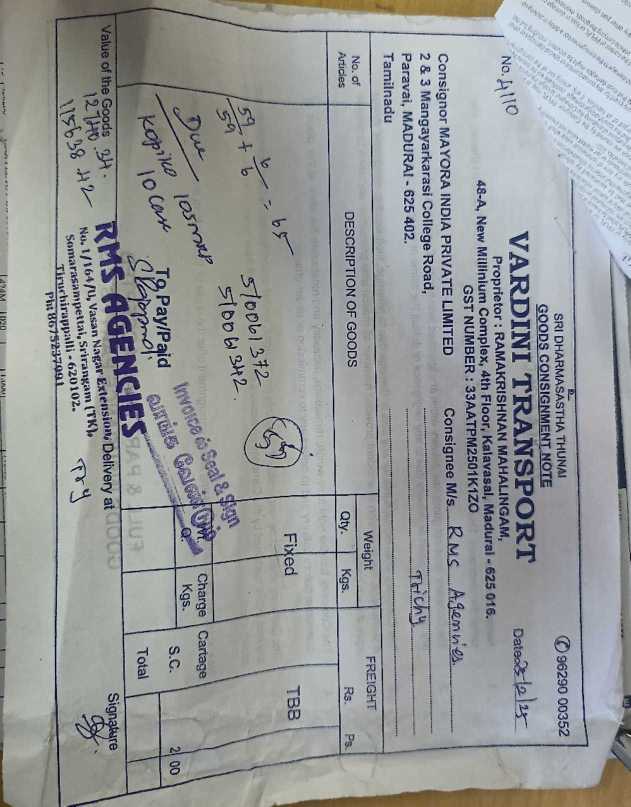 SRI DHARMASASTHA THUNAI
GOODS CONSIGNMENT NOTE
✆ 96290 00352
No. 4110
VARDINI TRANSPORT
Date: 25/2/25
Proprietor : RAMAKRISHNAN MAHALINGAM,
48-A, New Millinium Complex, 4th Floor, Kalavasal, Madurai - 625 016.
GST NUMBER : 33AATPM2501K1ZO
Consignor MAYORA INDIA PRIVATE LIMITED
2 & 3 Mangayarkarasi College Road,
Paravai, MADURAI - 625 402.
Tamilnadu
Consignee M/s. RMS Agencies
Trichy
No. of Articles
DESCRIPTION OF GOODS
Weight
Qty.
Kgs.
FREIGHT
Rs.
Ps.
59/59 + 6/6 = 65
510061372
510061342.
Fixed
TBB
Due
Kopiko 10 Case
Invoice ல் Seal & Sign
வாங்க வேண்டும்
Charge
Kgs.
Cartage
S.C.
2 00
To Pay/Paid
Total
Value of the Goods
127140.34.
115638.42
Delivery at
Try
RMS AGENCIES
No. 1/164/U, Vasan Nagar Extension,
Somarasampettai, Srirangam (TK),
Tiruchirappalli - 620102.
Ph: 8675237091
Signature